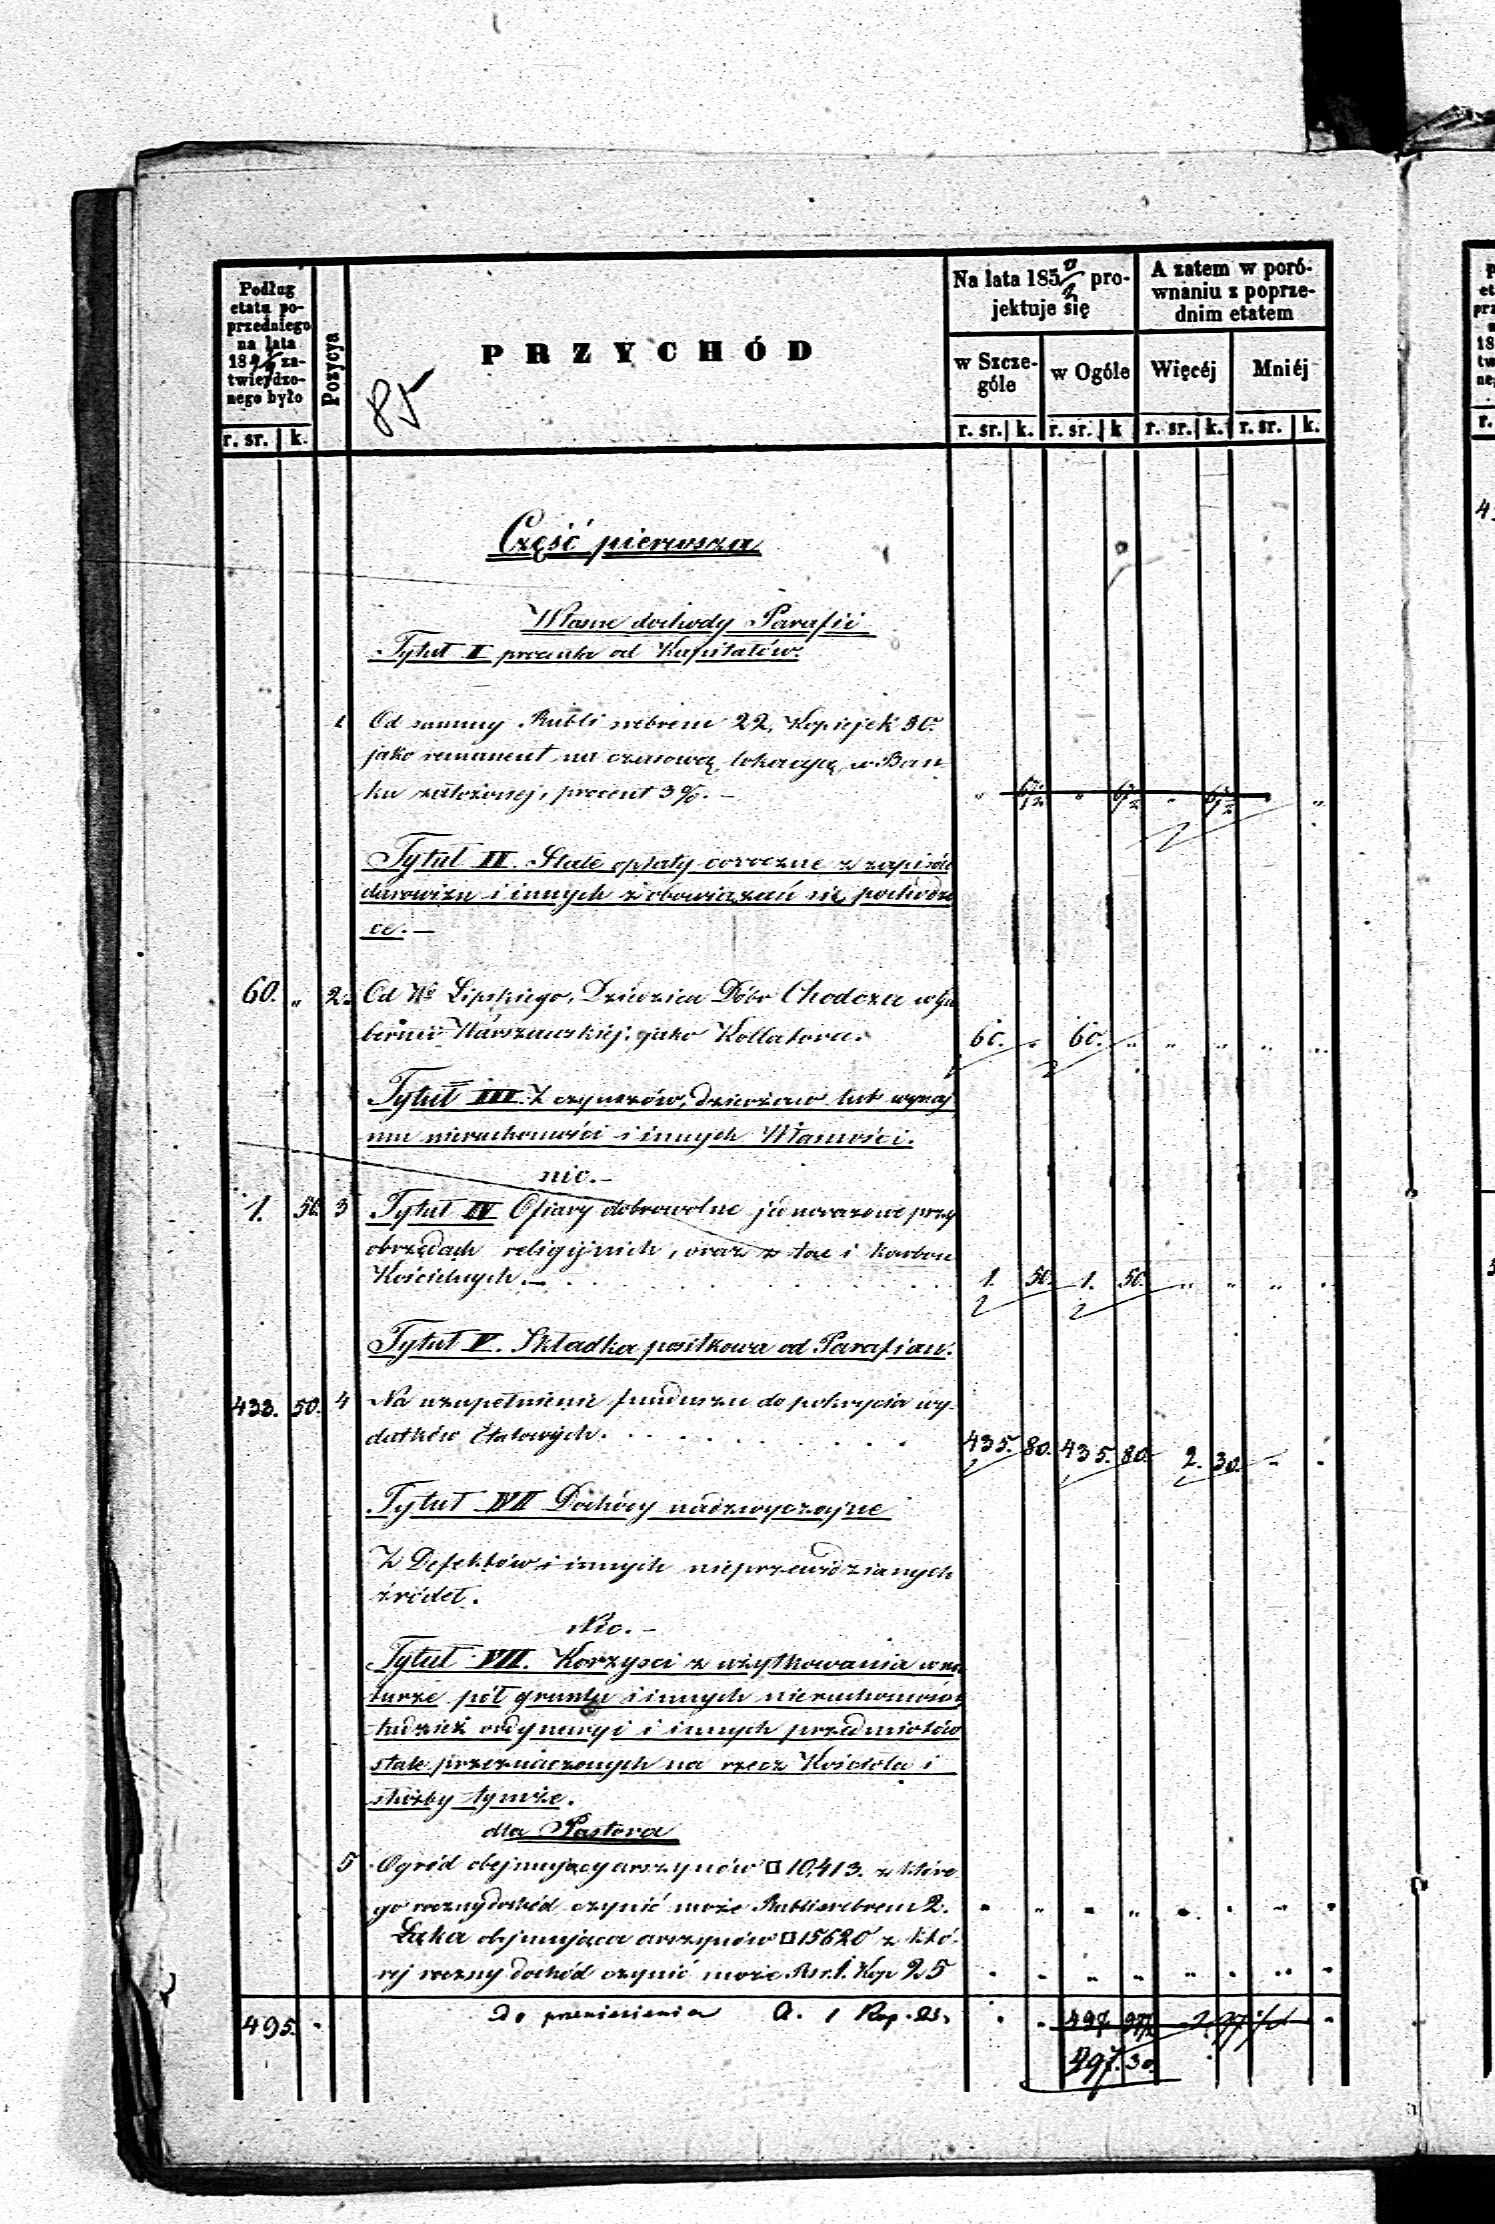 Podług
etatu po-
przedniego
na lata
18 za-
twierdzo-
nego było
r. sr. k.
Pozycya
PRZYCHÓD
85
Na lata 185 0/2 pro-
jektuje się
w Szcze-
góle
w Ogóle
r. sr. k. r. sr. k
A zatem w poró-
wnaniu z poprze-
dnim etatem
Więcéj
Mniéj
r. sr. k. r. sr. k.
Część pierwsza
Własne dochody Parafii
Tytuł I procenta od Kapitałów.
1 Od summy Rubli srebrem 22, Kopiejek 50.
jako remanent na czasową lokacyą w Ban-
ku złożonej, procent 3%. —
Tytuł II. Stałe opłaty coroczne z zapisów
darowizn i innych zobowiązań się pochodzą
ce. —
60. „ 2. Od Wo Lipskiego, Dziedzica Dóbr Chodcza w Gu
bernii Warszawskiej: jako Kollatora. 60. „ 60. „ „ „ „ „
Tytuł III. Z czynszów, dzierżaw lub wynaj
mu nieruchomości i innych Własności.
nic. —
1. 50. 3 Tytuł IV Ofiary dobrowolne jednorazowe przy
obrzędach religijnich, oraz z tac i karbon
Kościelnych. — 1. 50. 1. 50. „ „ „ „
Tytuł V. Składka posiłkowa od Parafian.
433. 50. 4 Na uzupełnienie funduszu do pokrycia wy-
datków Etatowych. 435. 80. 435. 80. 2. 30. „ „
Tytuł VI Dochody nadzwyczajne
Z Defektów i innych nieprzewidzianych
źródeł.
Nic. —
Tytuł VII. Korzysci z użytkowania w na
turze pól gruntu i innych nieruchomości
tudzież ordynaryi i innych przedmiotów
stale przeznaczonych na rzecz Kościoła i
służby tymże.
dla Pastora
5 Ogród obejmujący arszynów □ 10,413. z które
go roczny dochód czynić może Rubli srebrem 2.
Łąka obejmująca arszynów □ 15620 z któ-
rej roczny dochód czynić może Rsr. 1. Kop 25
495. „ Do przeniesienia 497
497. 30.